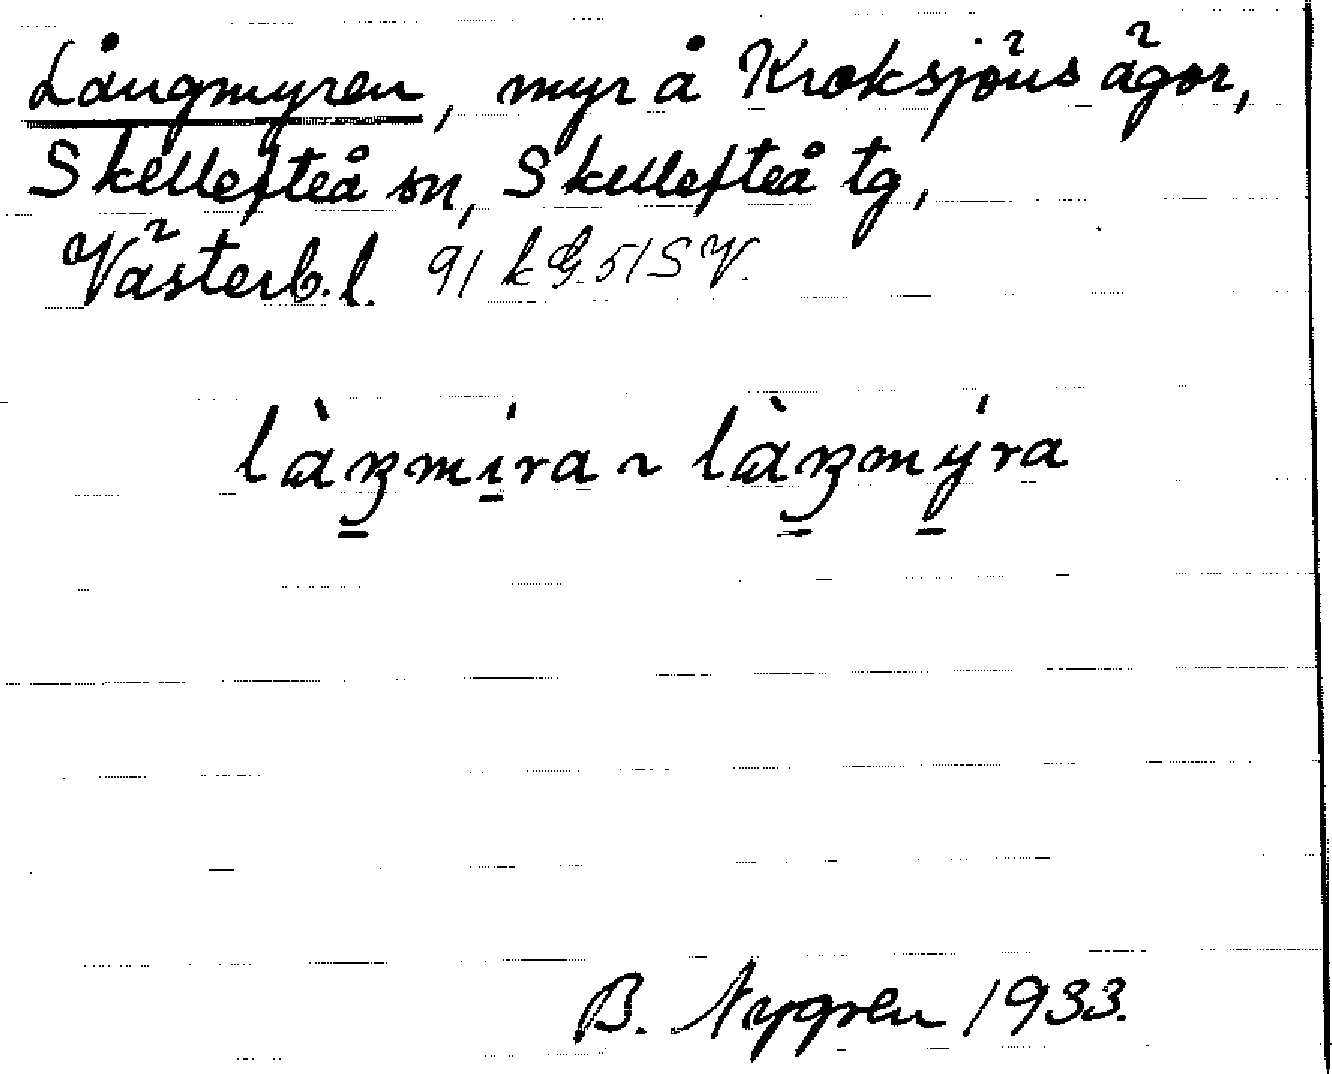 Långmyren, myr å Kroksjöns ägor,
Skellefteå sn, Skellefteå tg,
Västerb. l. 91 k G. 51 SV.
B. Nygren 1933.